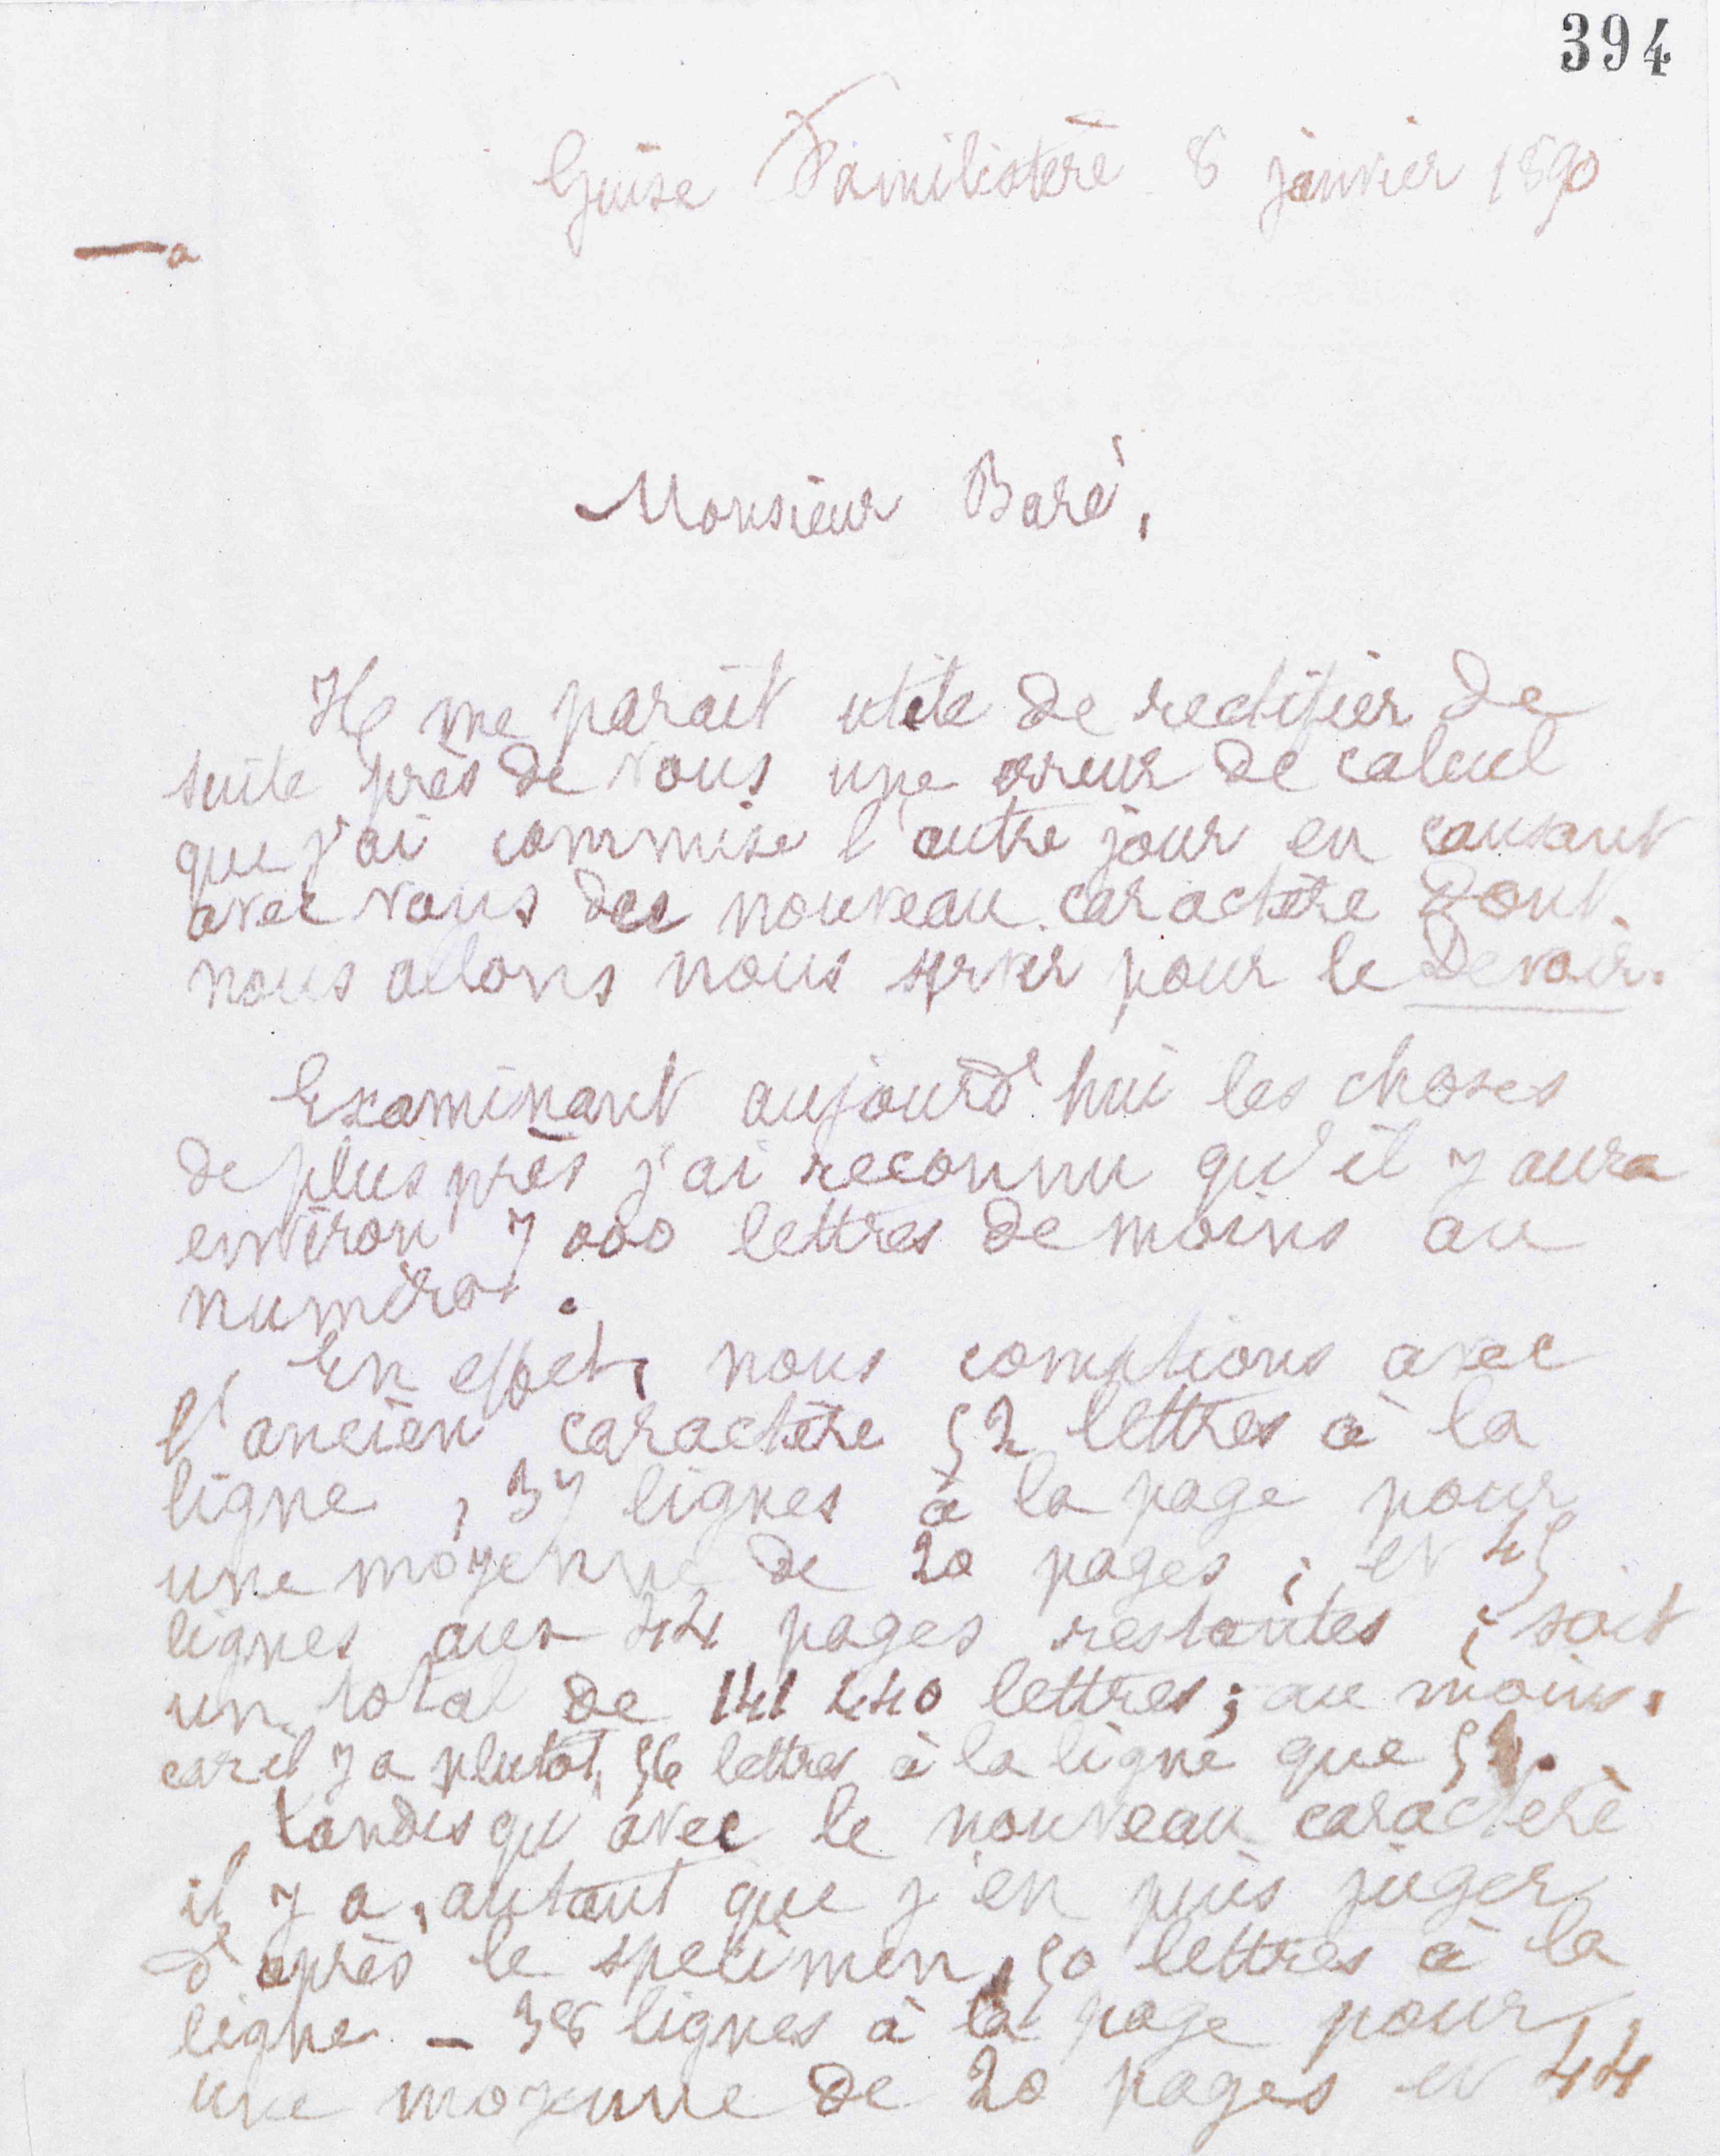 394
Guise Familistère 8 janvier 1890
Monsieur Baré,
Il me paraît utile de rectifier de
suite près de vous une erreur de calcul
que j'ai commise l'autre jour en causant
avec vous des nouveau caractère dont
nous allons nous servir pour le Devoir.
Examinant aujourd'hui les choses
de plus près j'ai reconnu qu'il y aura
environ 7 000 lettres de moins au
numéro.
En effet, nous comptions avec
l'ancien caractère 52 lettres à la
ligne, 37 lignes à la page pour
une moyenne de 20 pages ; et 45
lignes aux 44 pages restantes ; soit
un total de 141 440 lettres ; au moins.
car il y a plutôt 56 lettres à la ligne que 52.
Tandis qu'avec le nouveau caractère
il y a, autant que j'en puis juger
d'après le spécimen, 50 lettres à la
ligne - 38 lignes à la page pour
une moyenne de 20 pages et 44